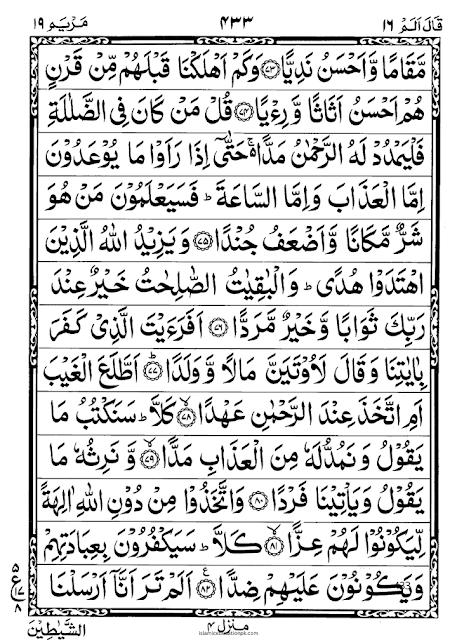 قَالَ اَلَمْ ١٦ ٤٣٣ مَرْيَم ١٩
مَّقَامًا وَّاَحْسَنُ نَدِيًّا ﴿٧٣﴾ وَكَمْ اَهْلَكْنَا قَبْلَهُمْ مِّنْ قَرْنٍ
هُمْ اَحْسَنُ اَثَاثًا وَّرِءْيًا ﴿٧٤﴾ قُلْ مَنْ كَانَ فِى الضَّلٰلَةِ
فَلْيَمْدُدْ لَهُ الرَّحْمٰنُ مَدًّا ۚ حَتّٰٓى اِذَا رَاَوْا مَا يُوْعَدُوْنَ
اِمَّا الْعَذَابَ وَاِمَّا السَّاعَةَ ؕ فَسَيَعْلَمُوْنَ مَنْ هُوَ
شَرٌّ مَّكَانًا وَّاَضْعَفُ جُنْدًا ﴿٧٥﴾ وَيَزِيْدُ اللّٰهُ الَّذِيْنَ
اهْتَدَوْا هُدًى ؕ وَالْبٰقِيٰتُ الصّٰلِحٰتُ خَيْرٌ عِنْدَ
رَبِّكَ ثَوَابًا وَّخَيْرٌ مَّرَدًّا ﴿٧٦﴾ اَفَرَءَيْتَ الَّذِىْ كَفَرَ
بِاٰيٰتِنَا وَقَالَ لَاُوْتَيَنَّ مَالًا وَّوَلَدًا ﴿٧٧﴾ؕ اَطَّلَعَ الْغَيْبَ
اَمِ اتَّخَذَ عِنْدَ الرَّحْمٰنِ عَهْدًا ﴿٧٨﴾ۙ كَلَّا ؕ سَنَكْتُبُ مَا
يَقُوْلُ وَنَمُدُّ لَهٗ مِنَ الْعَذَابِ مَدًّا ﴿٧٩﴾ۙ وَّنَرِثُهٗ مَا
يَقُوْلُ وَيَاْتِيْنَا فَرْدًا ﴿٨٠﴾ وَاتَّخَذُوْا مِنْ دُوْنِ اللّٰهِ اٰلِهَةً
لِّيَكُوْنُوْا لَهُمْ عِزًّا ﴿٨١﴾ۙ كَلَّا ؕ سَيَكْفُرُوْنَ بِعِبَادَتِهِمْ
وَيَكُوْنُوْنَ عَلَيْهِمْ ضِدًّا ﴿٨٢﴾ اَلَمْ تَرَ اَنَّآ اَرْسَلْنَا
٥
ع ٧
٨
منزل ٤
الشَّيٰطِيْنَ